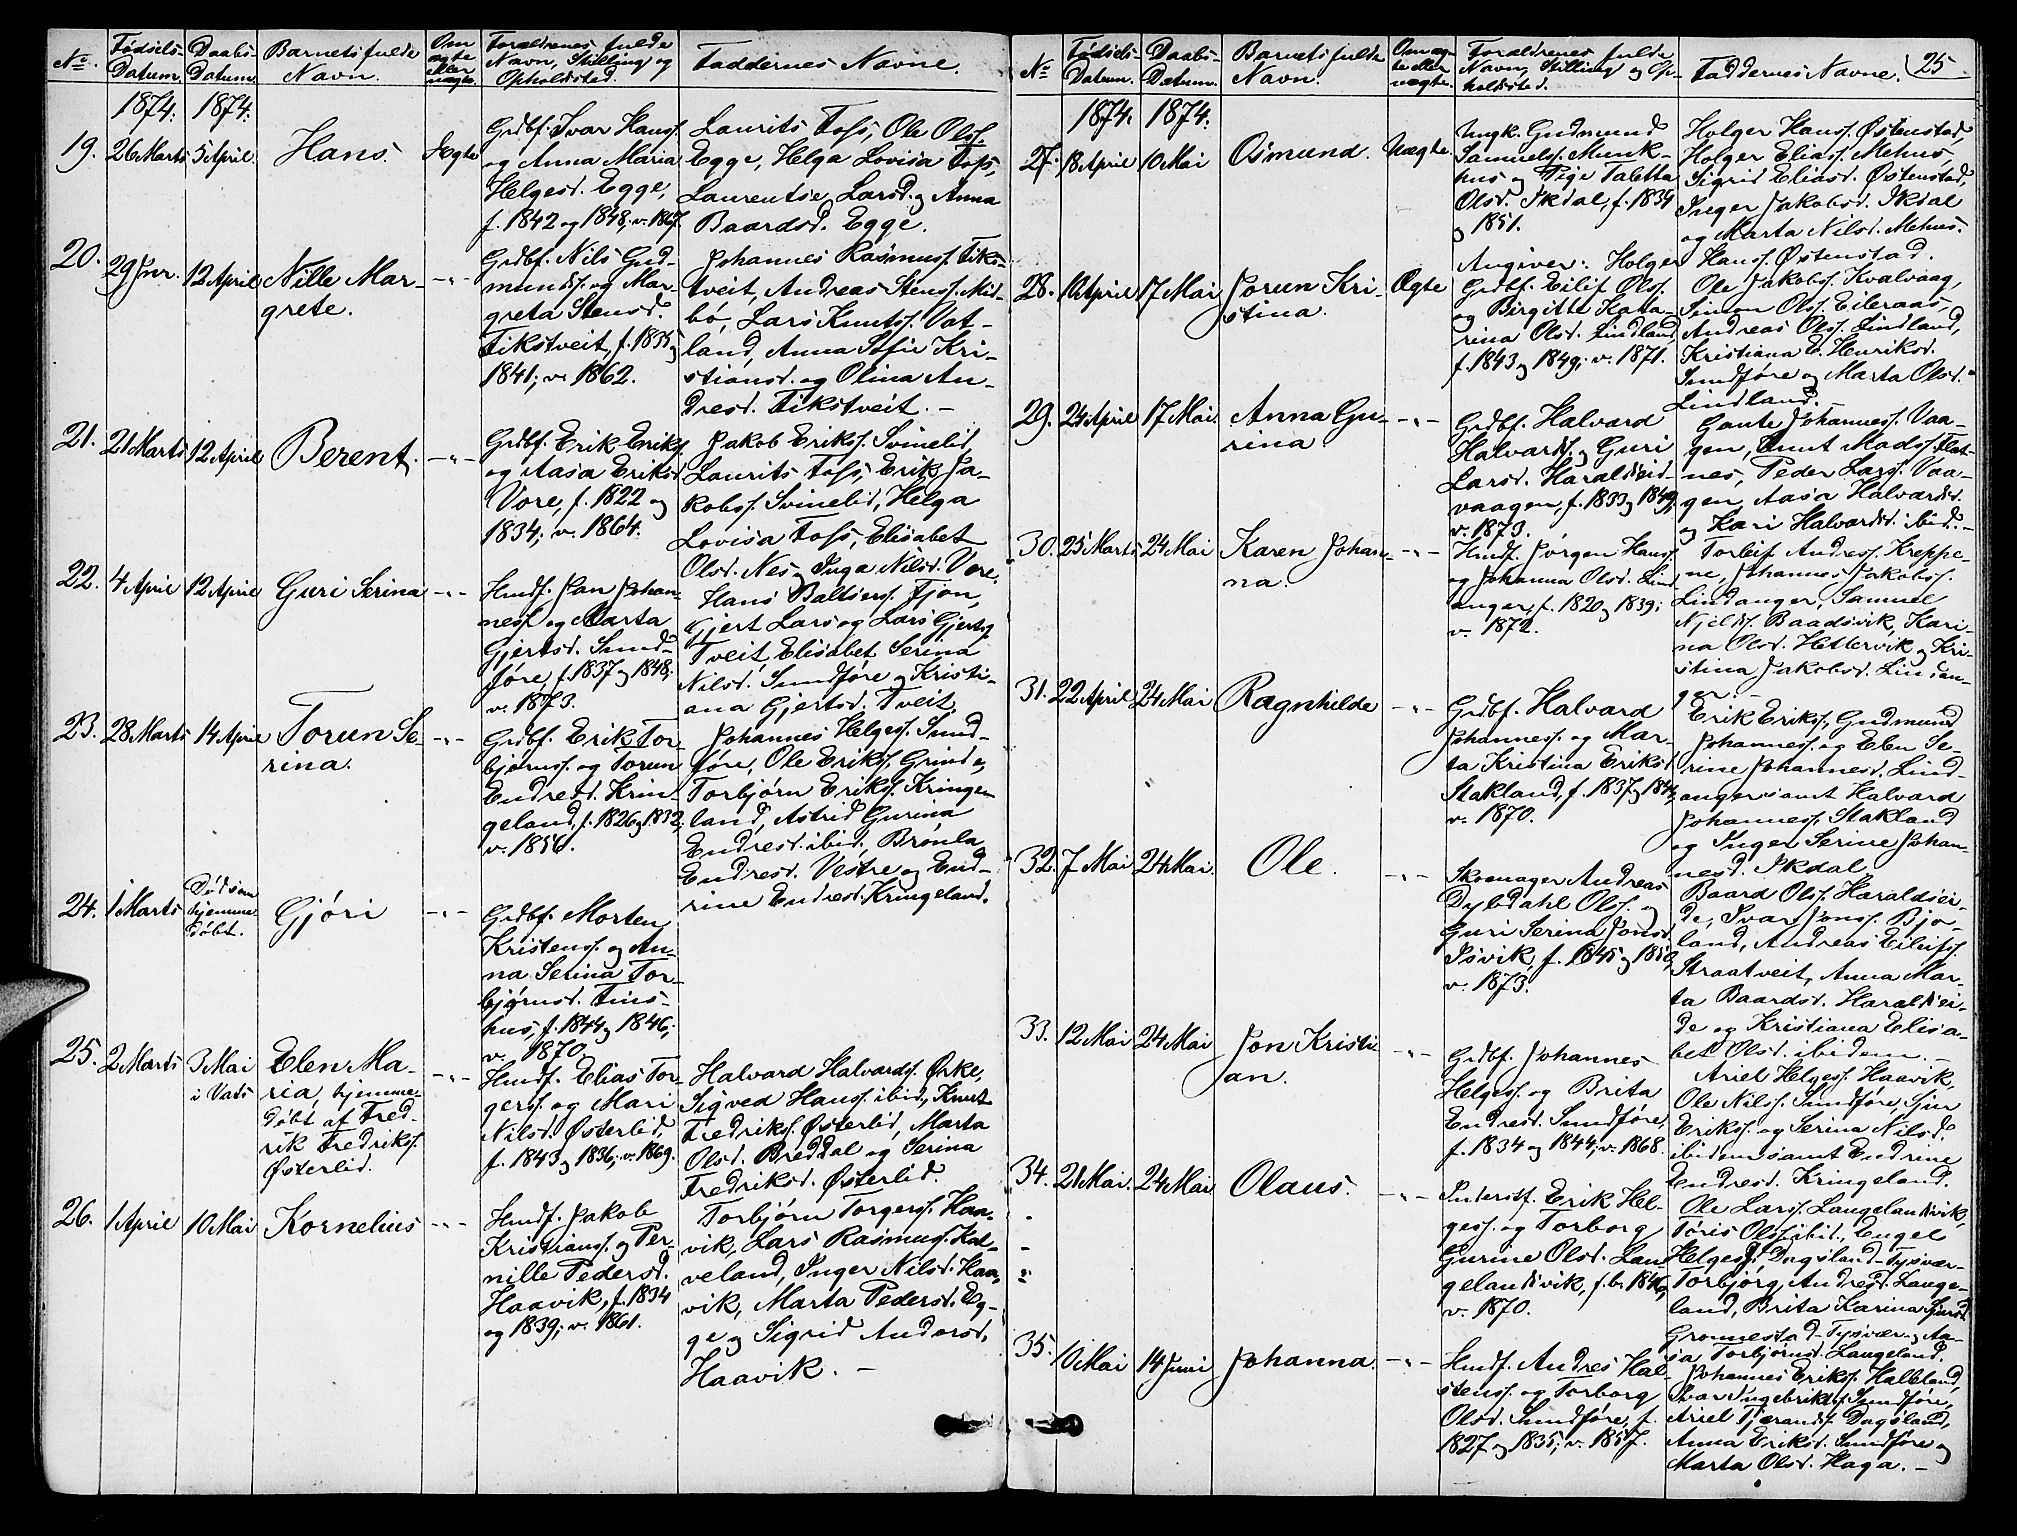 No. Fødsels-Datum. Daabs-Datum. Barnets fulde Navn. Om ægte eller uægte. Forældrenes fulde Navn, Stilling og Opholdsted. Faddernes Navne.
1874. 1874.
19. 26 Marts 5 April. Hans. Ægte
Grdbf. Ivar Hanss.
og Anna Maria
Helgesd. Egge,
f. 1842 og 1848; v. 1867.
Laurits Foss, Ole Olss.
Egge, Helga Lovisa Foss,
Laurentse Larsd. og Anna
Baardsd. Egge.
20. 29 Jnr. 12 April Nille Mar-
grete. -"-
Grdbf. Nils Gud-
mundss. og Mar-
greta Stensd.
Fikstveit, f. 1835 og
1841; v. 1862.
Johannes Rasmuss. Fiks-
tveit, Andreas Stenss. Mid-
bø, Lars Knutss. Vat-
land, Anna Sofie Kri-
stiansd. og Olina An-
dresd. Fikstveit. -
21. 21 Marts 12 April Berent. -"-
Grdbf. Erik Erikss.
og Aasa Eriksd.
Vore, f. 1822 og
1834; v. 1864.
Jakob Erikss. Svinelid,
Laurits Foss, Erik Ja-
kobss. Svinelid, Helga
Lovisa Foss, Elisabet
Olsd. Nes og Inga Nilsd. Vore.
22. 4 April 12 April Guri Serina -"-
Husmf. Jan Johan-
ness. og Marta
Gjertsd. Sund-
føre, f. 1837 og 1848;
v. 1873.
Hans Baltsers. Fjon,
Gjert Lars og Lars Gjertss.
Tveit, Elisabet Serina
Nilsd. Sundføre og Kristi-
ana Gjertsd. Tveit.
23. 28 Marts 14 April Torun Se-
rina. -"-
Grdbf. Erik Tor-
bjørnss. og Torun
Endresd. Krin-
geland, f. 1826 og 1832;
v. 1856.
Johannes Helgess. Sund-
føre, Ole Erikss. Grinde,
Torbjørn Erikss. Kringe-
land, Astrid Gurina
Endresd. ibid., Brønla
Endresd. Vestre og End-
rine Endresd. Kringeland.
24. 1 Marts Død som
hjemme-
døbt. Gjøri -"-
Grdbf. Morten
Kristenss. og An-
na Serina Tor-
bjørnsd. Tins-
hus, f. 1844 og 1846;
v. 1870.
25. 2 Marts 3 Mai
i Vats Elen Ma-
ria, hjemme-
døbt af Fred-
rik Fredrikss.
Østerlid. -"-
Husmf. Elias Tor-
gerss. og Mari
Nilsd. Østerlid,
f. 1843 og 1836; v. 1869.
Halvard Halvardss. Ørke,
Sigved Hanss. ibid., Knut
Fredrikss. Østerlid, Marta
Olsd. Breddal og Serina
Fredriksd. Østerlid.
26. 1 April 10 Mai Kornelius -"-
Husmf. Jakob
Kristianss. og Per-
nille Pedersd.
Haavik, f. 1834
og 1839; v. 1861.
Torbjørn Torgerss. Haa-
vik, Lars Rasmuss. Kal-
veland, Inger Nilsd. Haa-
vik, Marta Pedersd. Eg-
ge og Sigrid Andersd.
Haavik. -
No. Fødsels-Datum. Daabs-Datum. Barnets fulde Navn. Om æg-te eller uægte. Forældrenes fulde Navn, Stilling og Op-holdsted. Faddernes Navne. 25.
1874. 1874.
27. 18 April 10 Mai Osmund. Uægte.
Ungk. Gudmund
Samuelss. Munk-
hus og Pige Taletta
Olsd. Skdal, f. 1834
og 1851.
Holger Hanss. Østenstad,
Holger Eliass. Mehus,
Sigrid Eliasd. Østenstad,
Inger Jakobsd. Skdal
og Marta Nilsd. Mehus.
Angiver: Holger Hanss. Østenstad.
28. 10 April 17 Mai Jorun Kri-
stina. Ægte
Grdbf. Eilif Olss.
og Birgitte Kata-
rina Olsd. Lindland,
f. 1843 og 1849; v. 1871.
Ole Jakobss. Kvalvaag,
Simon Olss. Eileraas,
Andreas Olss. Lindland,
Kristiana E. Henriksd.
Sundføre og Marta Olsd.
Lindland. -
29. 24 April 17 Mai. Anna Gu-
rina -"-
Grdbf. Halvard
Halvardss. og Guri
Larsd. Haraldseid-
vaagen, f. 1833 og 1849;
v. 1873.
Gaute Johanness. Vaa-
gen, Knut Madss. Flat-
nes, Peder Larss. Vaa-
gen, Aasa Halvardsd.
og Kari Halvardsd. ibid. -
30. 25 Marts 24 Mai Karen Johan-
na. -"-
Husmf. Jørgen Hanss.
og Johanna Olsd. Lind-
anger, f. 1820 og 1839;
v. 1872.
Torleif Andress. Kreppe-
ne, Johannes Jakobss.
Lindanger, Samuel
Njelss. Baadsvik, Kari-
na Olsd. Hettervik og Kri-
stina Jakobsd. Lindan-
ger. -
31. 22 April 24 Mai Ragnhilde -"-
Grdbf. Halvard
Johanness. og Mar-
ta Kristina Eriksd.
Stakland, f. 1837 og 1844;
v. 1870.
Erik Erikss., Gudmund
Johanness. og Elen Se-
rine Johannesd. Lind-
anger samt Halvard
Johanness. Stakland
og Inger Serine Johan-
nesd. Skdal.
32. 7 Mai 24 Mai. Ole. -"-
Skomager Andreas
Dybdahl Olss. og
Guri Serina Jonsd.
Isvik, f. 1845 og 1850;
v. 1873.
Baard Olss. Haraldsei-
de, Ivar Jonss. Bjo-
land, Andreas Eilifss.
Straatveit, Anna Mar-
ta Baardsd. Haraldsei-
de og Kristiana Elisa-
bet Olsd. ibidem. -
33. 12 Mai 24 Mai Jon Kristi-
an. -"-
Grdbf. Johannes
Helgess. og Brita
Endresd. Sundføre,
f. 1834 og 1844; v. 1868.
Ariel Helgess. Haavik,
Ole Nilss. Sundføre, Sjur
Erikss. og Serina Nilsd.
ibidem samt Endrine
Endresd. Kringeland.
34. 21 Mai. 24 Mai Olaus. -"-
Inderstf. Erik Hel-
gess. og Torborg
Gurine Olsd. Lan-
gelandsvik, f. b. 1846;
v. 1870.
Ole Larss. Langelandsvik,
Tøris Olss. ibid., Engel
Helgesd. Dagsland - Tysvær -
Torbjørg Andresd. Lange-
land, Brita Karina Sjursd.
Grønnestad - Tysvær og Aa-
sa Torbjørnsd. Langeland.
35. 10 Mai 14 Juni Johanna. -"-
Husmf. Andres Hal-
stenss. og Torborg
Olsd. Sundføre, f.
1827 og 1835; v. 1857.
Johannes Erikss. Halleland,
Ivar Ingebrikts. Sundføre,
Ariel Tjerandss. Dagsland,
Anna Eriksd. Sundføre og
Marta Olsd. Haga. -